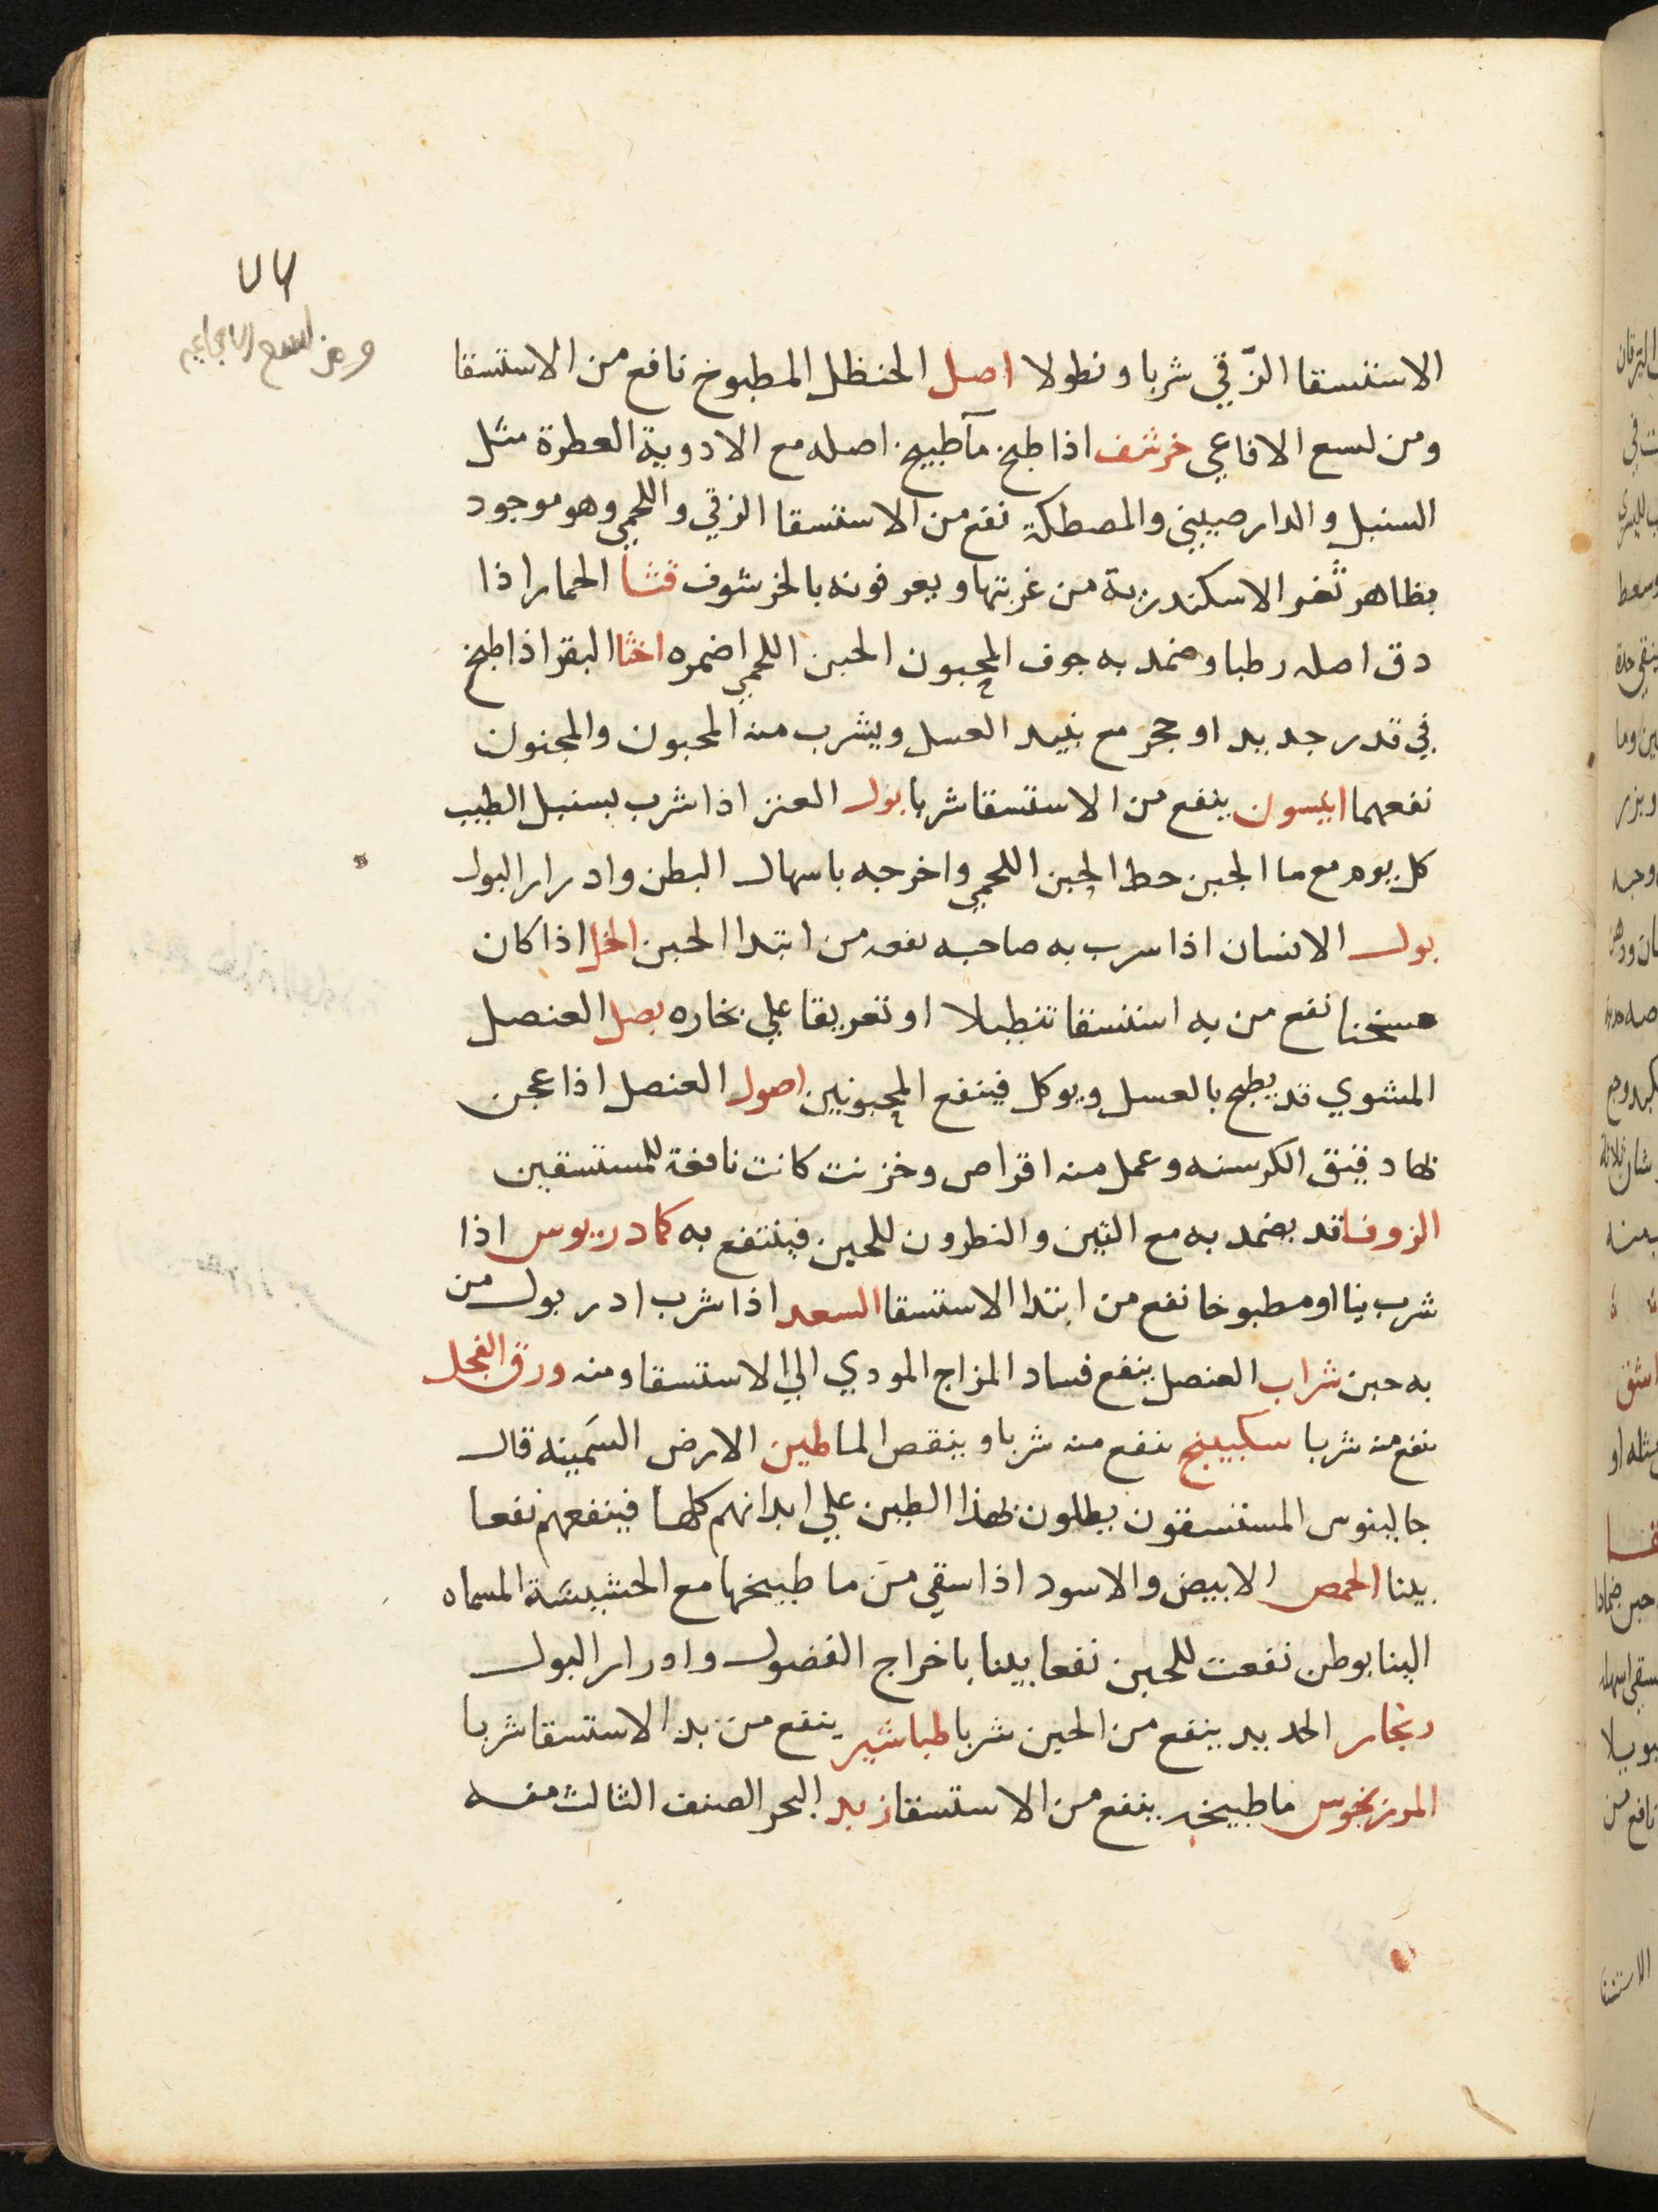 ومن لسع الافاعي
الاستسقا الزّقي شربا ونطولا اصل الحنظل المطبوخ نافع من الاستسقا
ومن لسع الافاعي خرشف اذا طبخ مآ طبيخ اصله مع الادوية العطرة مثل
السنبل والدارصيني والمصطكة نفع من الاستسقا الزقي واللحمي وهو موجود
بظاهر ثغر الاسكندرية من غربتها ويعرفونه بالخرشوف قثا الحمار اذا
دق اصله رطبا وضمد به جوف المحبون الحبن اللحمي اضمره اخثا البقر اذا طبخ
في قدر جديد او حجر مع نبيد العسل ويشرب منه المحبون والمجنون
نفعهما انيسون ينفع من الاستسقا شربا بول العنز اذا شرب بسنبل الطيب
كل يوم مع ما الجبن حط الحبن اللحمي واخرجه باسهال البطن وادرار البول
بول الانسان اذا سرب به صاحبه نفعه من ابتدا الحبن الخل اذا كان
مسخنا نفع من به استسقا تنطيلا او تعريقا علي بخاره بصل العنصل
المشوي قد يطبخ بالعسل ويوكل فينفع المحبونين اصول العنصل اذا عجن
بها دقيق الكرسنه وعمل منه اقراص وخزنت كانت نافعة للمستسقين
الزوفا قد يضمد به مع التين والنطرون للحبن فينتفع به كمادريوس اذا
شرب نيا او مطبوخا نفع من ابتدا الاستسقا السعد اذا شرب ادر بول من
به حبن شراب العنصل ينفع فساد المزاج المودي الي الاستسقا ومنه ورق الفجل
نفع منه شربا سكبينج نفع منه شربا وينقص الما طين الارض السَمينه قال
جالينوس المستسقون يطلون بهذا الطين علي ابدانهم كلها فينفعهم نفعا
بينا الحمص الابيض والاسود اذا سقي مَن ما طبيخها مع الحشيشة المسماه
البنابوطن نفعت للحبن نفعا بينا باخراج الفضول وادرار البول
زنجار الحديد ينفع من الحبن شربا طباشير ينفع من بدا الاستسقا شربا
المرزنجوس ما طبيخه ينفع من الاستسقا زبد البحر الصنف الثالث منه